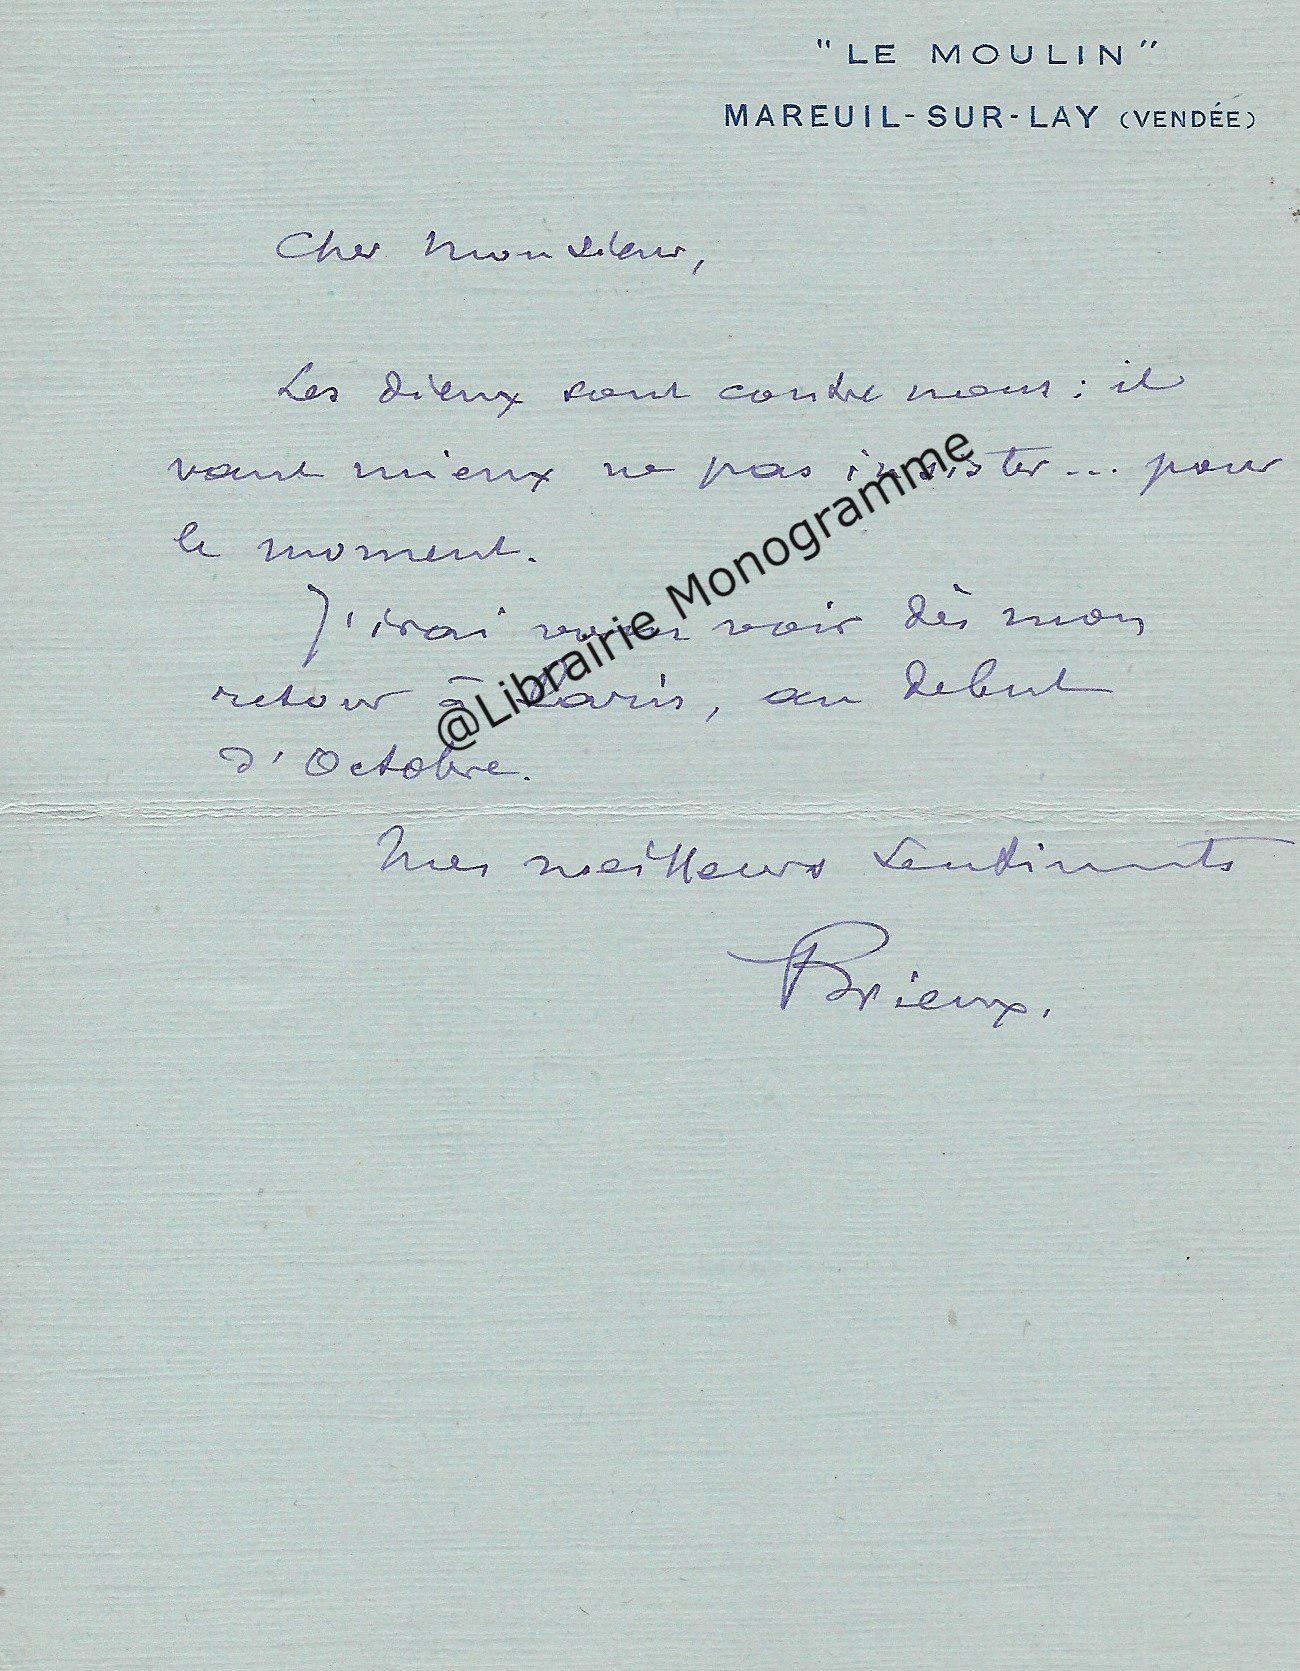 "LE MOULIN"
MAREUIL-SUR-LAY (VENDÉE)
Cher Monsieur,
Les dieux sont contre nous : il
vaut mieux ne pas insister... pour
le moment.
J'irai vous voir dès mon
retour à Paris, au début
d'Octobre.
Mes meilleurs sentiments
Brieux.
@Librairie Monogramme